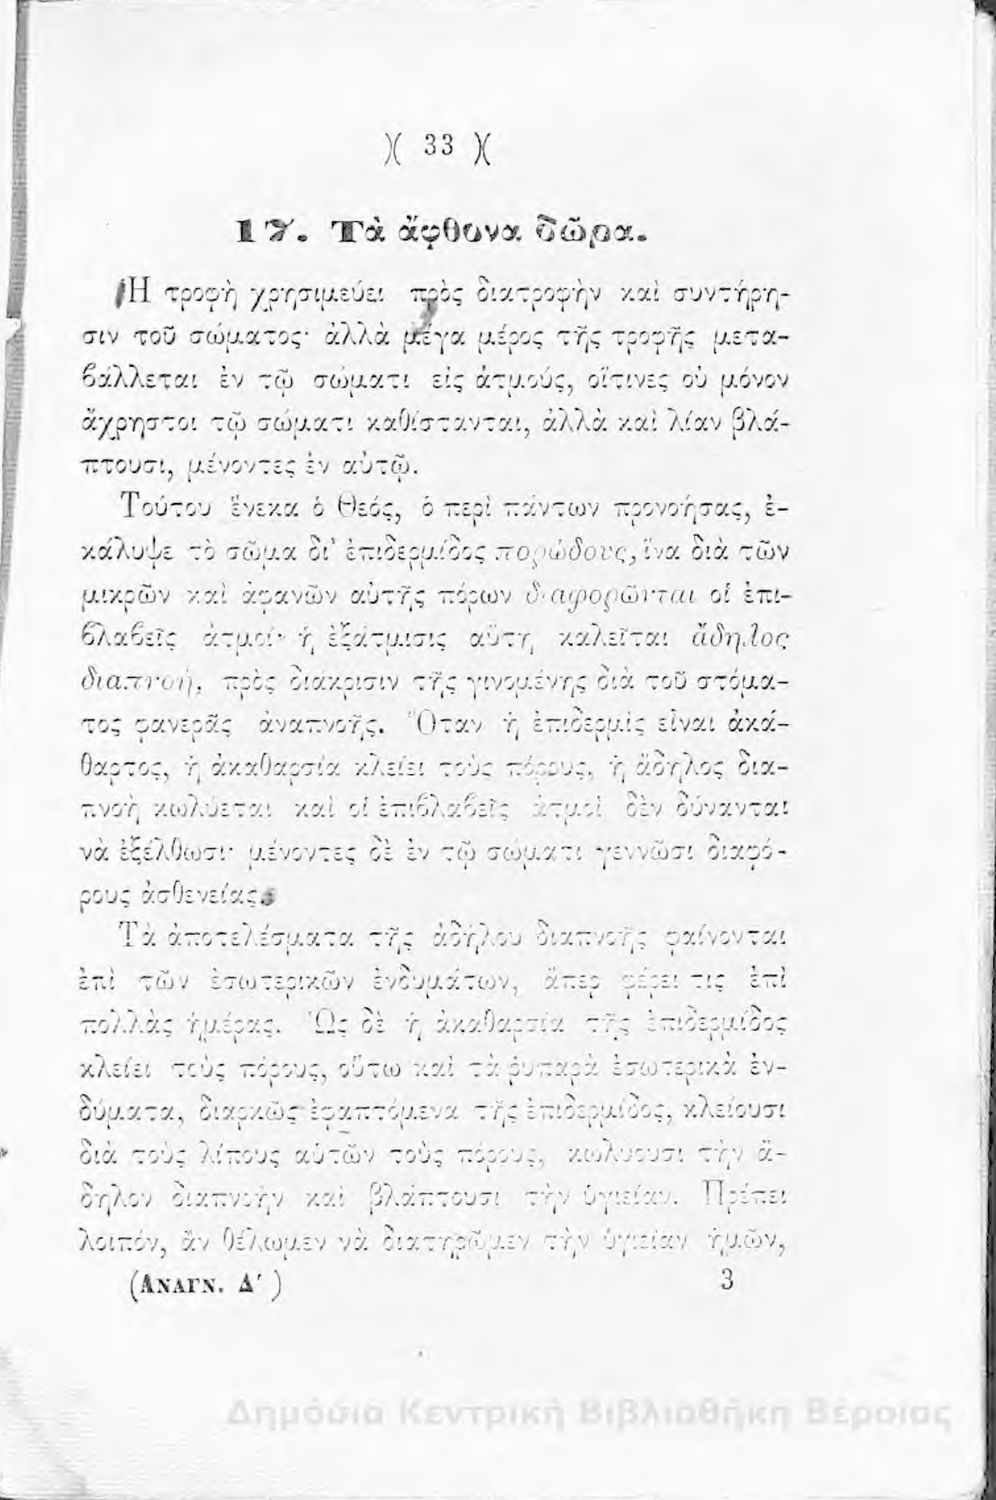 )( 33 )(
17. Τὰ ἄφθονα δῶρα.
Ἡ τροφὴ χρησιμεύει πρὸς διατροφὴν καὶ συντήρη-
σιν τοῦ σώματος· ἀλλὰ μέγα μέρος τῆς τροφῆς μετα-
βάλλεται ἐν τῷ σώματι εἰς ἀτμούς, οἵτινες οὐ μόνον
ἄχρηστοι τῷ σώματι καθίστανται, ἀλλὰ καὶ λίαν βλά-
πτουσι, μένοντες ἐν αὐτῷ.
Τούτου ἕνεκα ὁ Θεός, ὁ περὶ πάντων προνοήσας, ἐ-
κάλυψε τὸ σῶμα δι' ἐπιδερμίδος πορώδους, ἵνα διὰ τῶν
μικρῶν καὶ ἀφανῶν αὐτῆς πόρων διαφορῶνται οἱ ἐπι-
βλαβεῖς ἀτμοί· ἡ ἐξάτμισις αὕτη καλεῖται ἄδηλος
διαπνοή, πρὸς διάκρισιν τῆς γινομένης διὰ τοῦ στόμα-
τος φανερᾶς ἀναπνοῆς. Ὅταν ἡ ἐπιδερμὶς εἶναι ἀκά-
θαρτος, ἡ ἀκαθαρσία κλείει τοὺς πόρους, ἡ ἄδηλος δια-
πνοὴ κωλύεται καὶ οἱ ἐπιβλαβεῖς ἀτμοὶ δὲν δύνανται
νὰ ἐξέλθωσι· μένοντες δὲ ἐν τῷ σώματι γεννῶσι διαφό-
ρους ἀσθενείας.
Τὰ ἀποτελέσματα τῆς ἀδήλου διαπνοῆς φαίνονται
ἐπὶ τῶν ἐσωτερικῶν ἐνδυμάτων, ἅπερ φέρει τις ἐπὶ
πολλὰς ἡμέρας. Ὡς δὲ ἡ ἀκαθαρσία τῆς ἐπιδερμίδος
κλείει τοὺς πόρους, οὕτω καὶ τὰ ῥυπαρὰ ἐσωτερικὰ ἐν-
δύματα, διαρκῶς ἐφαπτόμενα τῆς ἐπιδερμίδος, κλείουσι
διὰ τοὺς λίπους αὐτῶν τοὺς πόρους, κωλύουσι τὴν ἄ-
δηλον διαπνοὴν καὶ βλάπτουσι τὴν ὑγιείαν. Πρέπει
λοιπόν, ἂν θέλωμεν νὰ διατηρῶμεν τὴν ὑγιείαν ἡμῶν,
(ΑΝΑΓΝ. Δ′ ) 3
Δημόσια Κεντρική Βιβλιοθήκη Βέροιας